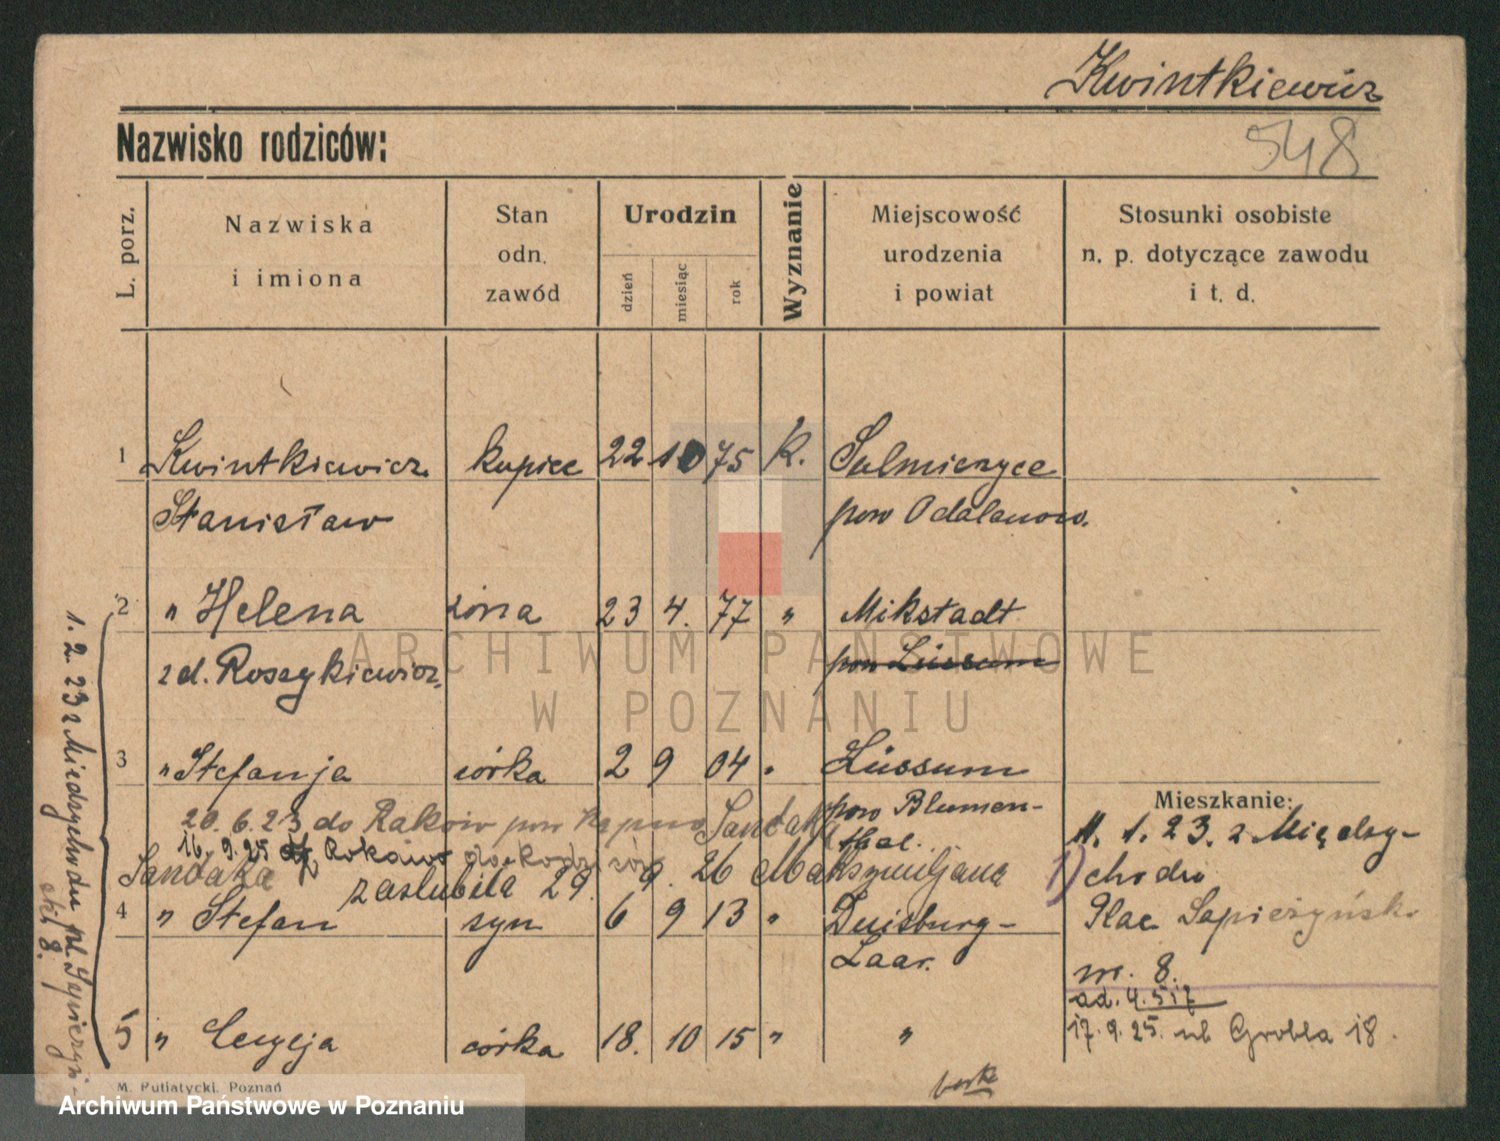 Kwintkiewicz
548
Nazwisko rodziców:
L. porz.
Nazwiska
i imiona
Stan
odn.
zawód
Urodzin
dzień
miesiąc
rok
Wyznanie
Miejscowość
urodzenia
i powiat
Stosunki osobiste
n. p. dotyczące zawodu
i t. d.
1 Kwintkiewicz kupiec 22 10 75 K. Sulmierzyce
Stanisław pow Odolanow.
2 " Helena żona 23 4. 77 " Mikstadt
z d. Roszykiewicz pow Lüssum
3 " Stefanja córka 2 9 04 " Lüssum
20. 6. 23 do Raków pow Kępno pow Blumen-
thal.
16. 9. 25
Sandaka zaślubiła 29. 9. 26 Maksymiljana
4 " Stefan syn 6 9 13 " Duisburg-
Laar.
5 " Lucyja córka 18. 10 15 " "
Mieszkanie:
11. 1. 23. z Między-
1) chodu
Plac Sapieżyńsk
m. 8.
ad. 4.517
17. 9. 25. ul Grobla 18.
1. 2. 23 z Miedzychodu pl. Sapieżyń-
ski 8.
M. Putiatycki, Poznań
ARCHIWUM PAŃSTWOWE
W POZNANIU
Archiwum Państwowe w Poznaniu